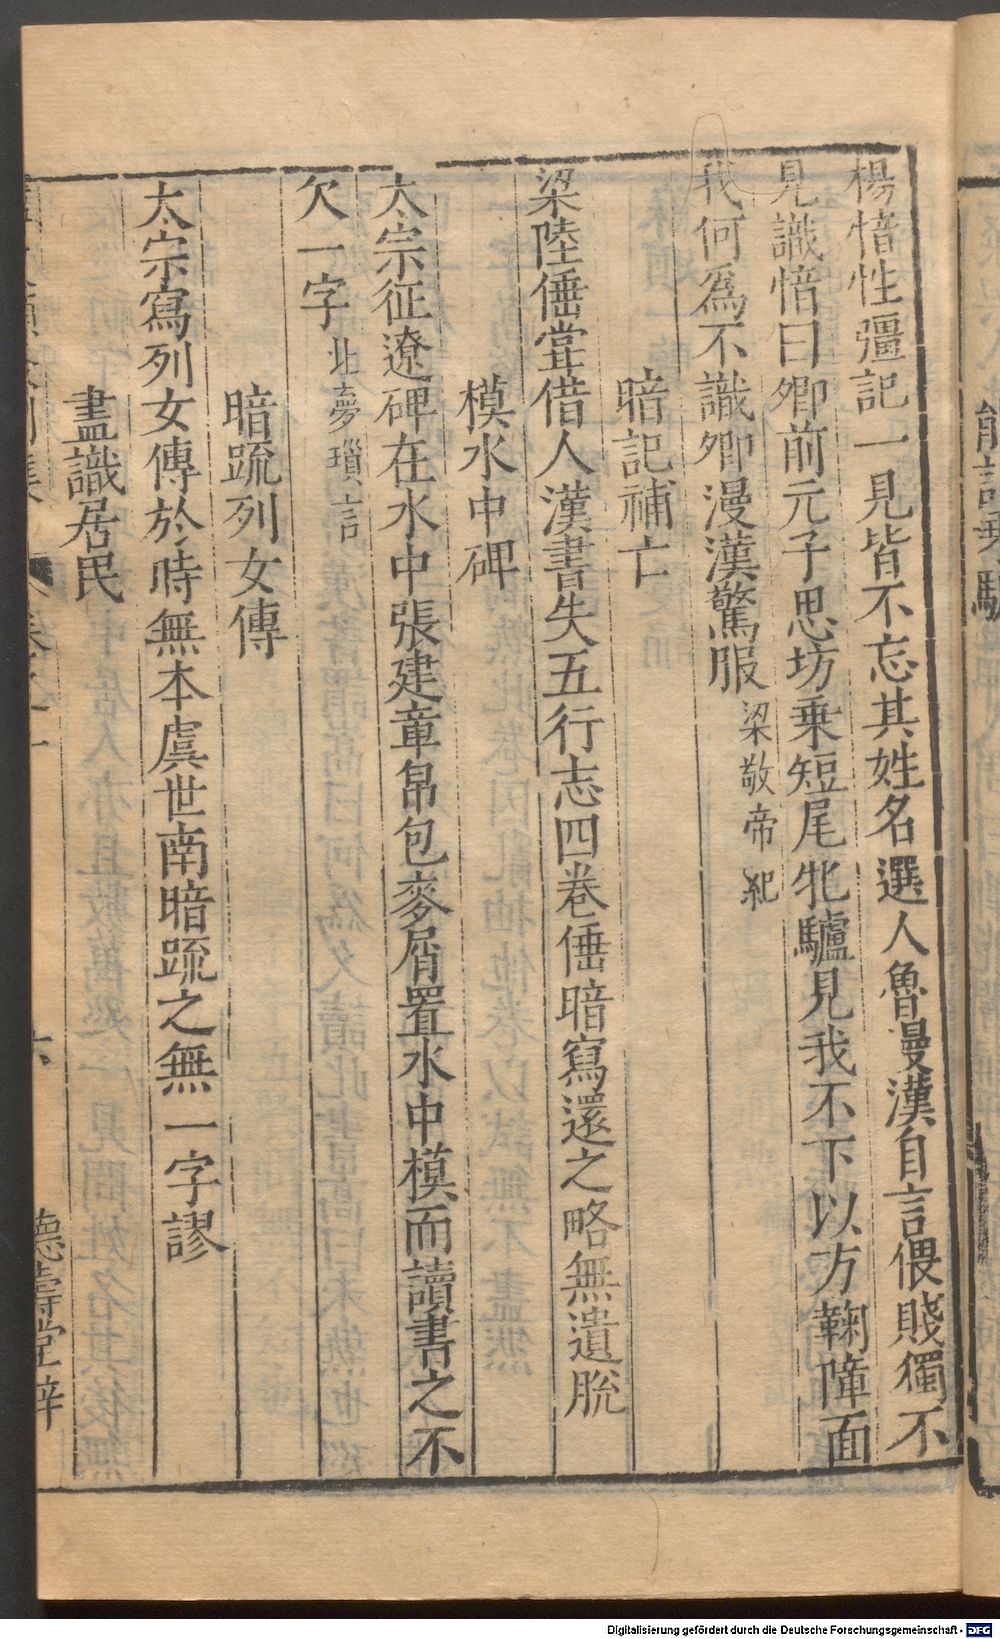 楊愔性彊記一見皆不忘其姓名選人魯漫漢自言偎賤獨不
見識愔曰卿前元子思坊乗短尾牝驢見我不下以方鞠障面
我何爲不識卿漫漢驚服梁敬帝紀
暗記補亡
梁陸倕甞借人漢書失五行志四卷倕暗寫還之略無遺脫
模水中碑
太宗征遼碑在水中張建章帛包麥屑置水中模而讀書之不
欠一字北夢瑣言
暗䟽列女傳
太宗寫列女傳於時無本虞世南暗䟽之無一字謬
盡識居民
六
德壽堂梓
Digitalisierung gefördert durch die Deutsche Forschungsgemeinschaft - DFG